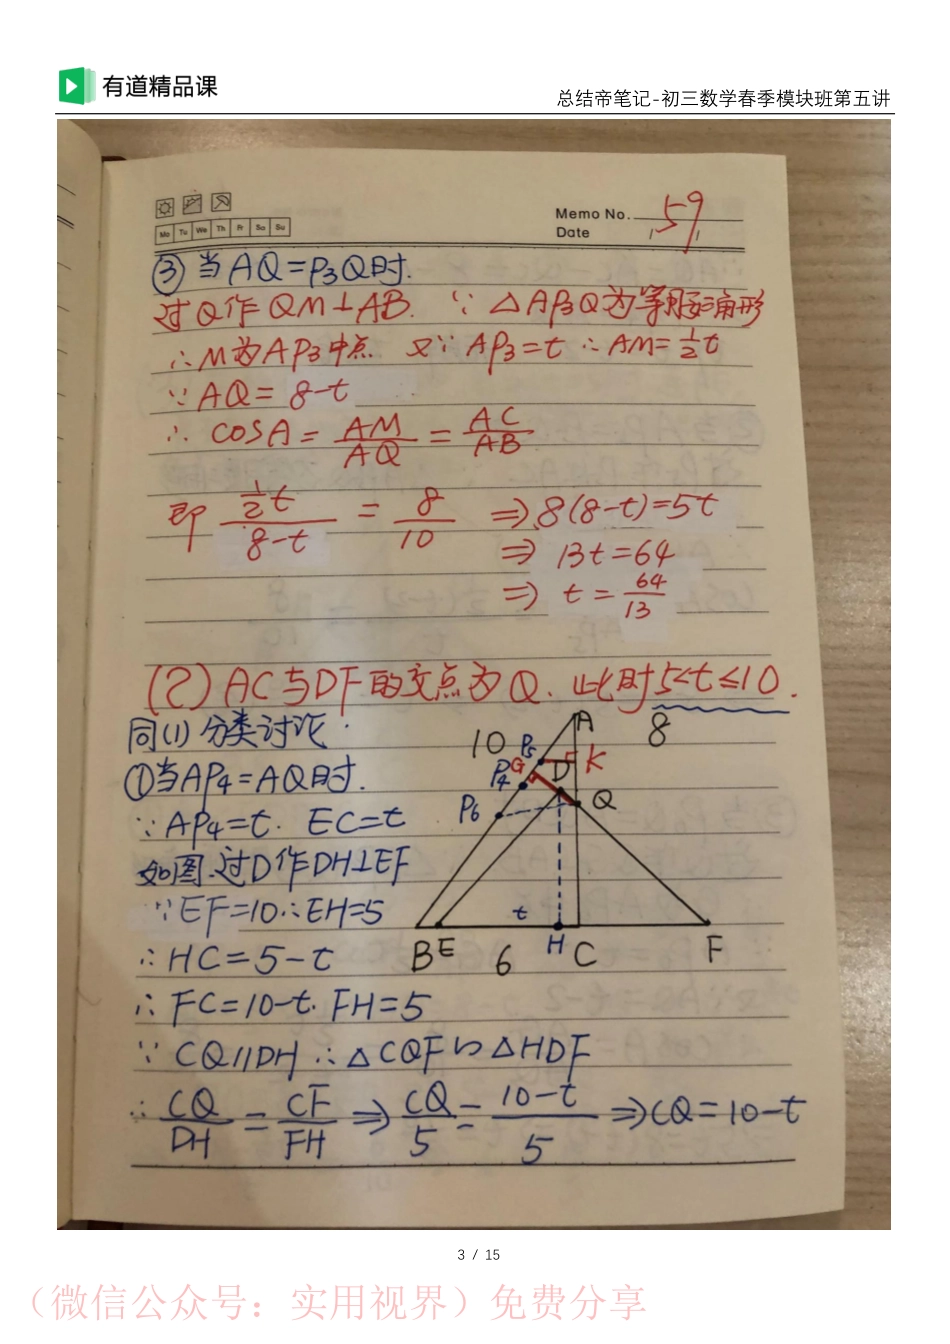 有道精品课
总结帝笔记-初三数学春季模块班第五讲
Memo No. 59
Mo Tu We Th Fr Sa Su
Date / /
③当AQ=P₃Q时.
过Q作QM⊥AB. ∵△AP₃Q为等腰三角形
∴M为AP₃中点 又∵AP₃=t ∴AM=½t
∵AQ=8-t
∴cosA=AM/AQ=AC/AB
即 ½t/8-t = 8/10 ⇒8(8-t)=5t
⇒ 13t=64
⇒ t=64/13
(2)AC与DF的交点为Q. 此时5<t≤10.
同(1)分类讨论.
①当AP₄=AQ时.
∵AP₄=t. EC=t
如图.过D作DH⊥EF
∵EF=10∴EH=5
∴HC=5-t
∴FC=10-t. FH=5
∵CQ//DH ∴△CQF∽△HDF
∴CQ/DH=CF/FH⇒CQ/5=10-t/5⇒CQ=10-t
A
10
8
P₅
K
G
D
P₄
Q
P₆
t
B
E
6
H
C
F
3 / 15
（微信公众号：实用视界）免费分享